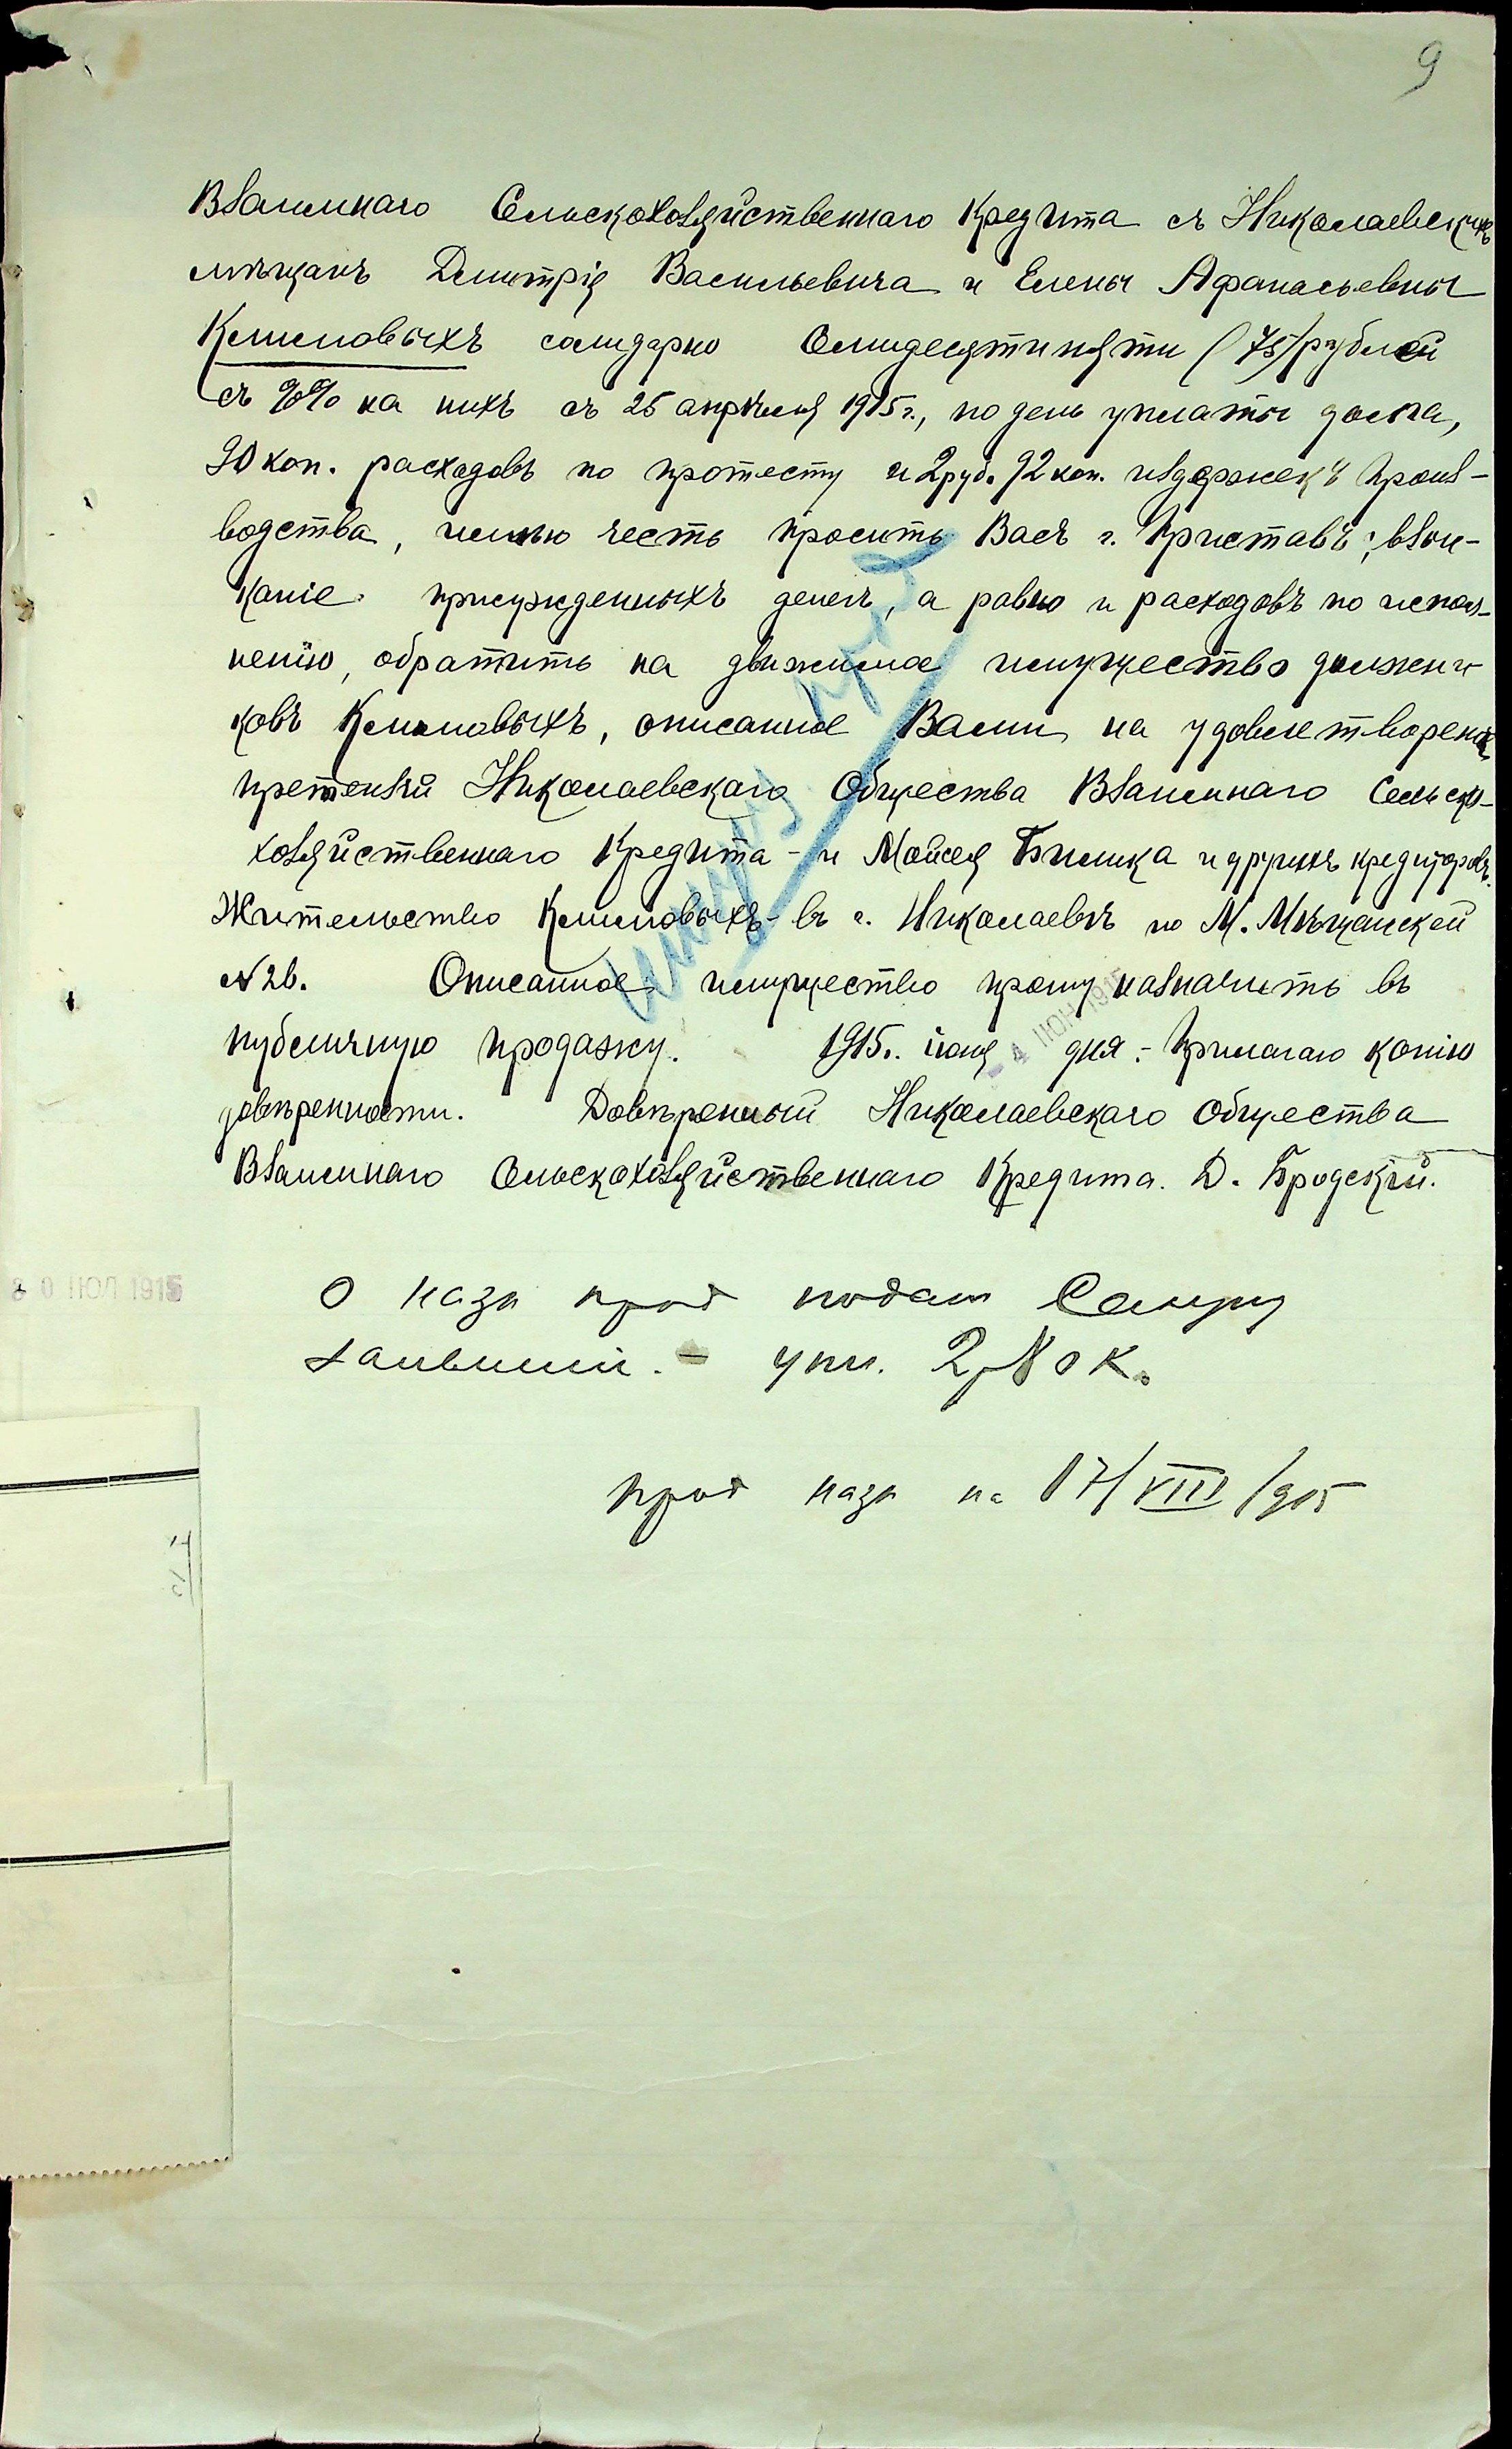 9
Взаимнаго Сельскохозяйственнаго Кредита съ Николаевскихъ
мѣщанъ Дмитрія Васильевича и Елены Афанасьевны
Климовыхъ солидарно Семидесятипяти (75) рублей
съ %% на нихъ съ 25 апрѣля 1915 г., по день уплаты долга,
90 коп. расходовъ по протесту и 2 руб. 92 коп. издержекъ произ-
водства, имѣю честь просить Васъ г. Приставъ, взыс-
каніе присужденныхъ денегъ, а равно и расходовъ по испол-
ненію, обратить на движимое имущество должни-
ковъ Климовыхъ, описанное Вами на удовлетвореніе
претензій Николаевскаго Общества Взаимнаго Сельско-
хозяйственнаго Кредита - и Мойсея Билика и другихъ кредиторовъ.
Жительство Климовыхъ - въ г. Николаевѣ по М. Мѣщанской
№ 26. Описанное имущество прошу назначить въ
публичную продажу. 1915 г. іюня - 4 ІЮН 1915 дня. - Прилагаю копію
довѣренности. Довѣренный Николаевскаго Общества
Взаимнаго Сельскохозяйственнаго Кредита. Д. Бродскій.
30 ІЮЛ 1915
О назн прод подат
упл. 2
прод назн на 17/VIII/915